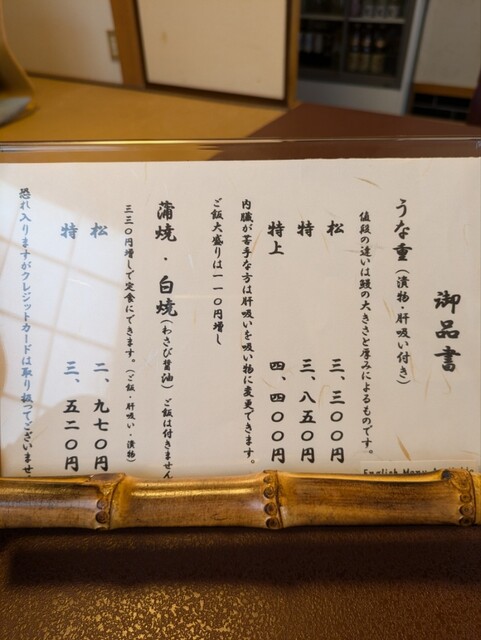 御品書
うな重(漬物・肝吸い付き)
値段の違いは鰻の大きさと厚みによるものです。
松 三、三〇〇円
特 三、八五〇円
特上 四、四〇〇円
内臓が苦手な方は肝吸いを吸い物に変更できます。
ご飯大盛りは一一〇円増し
蒲焼・白焼(わさび醤油)ご飯は付きません
三三〇円増しで定食にできます。(ご飯・肝吸い・漬物)
松 二、九七〇円
特 三、五二〇円
恐れ入りますがクレジットカードは取り扱ってございませ
English Menu